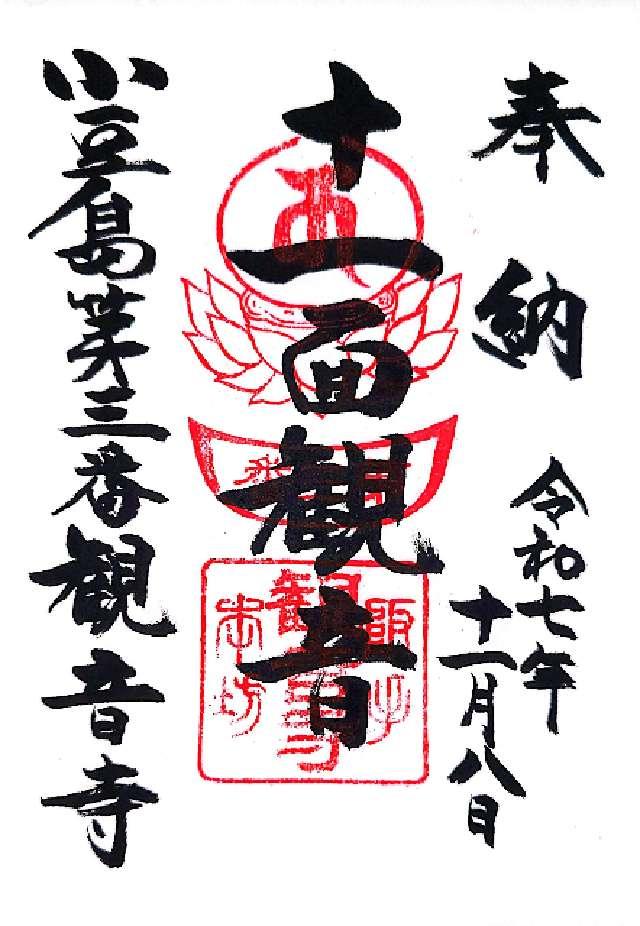 奉納
令和七年
十一月八日
十一面観音
小豆島第三番観音寺